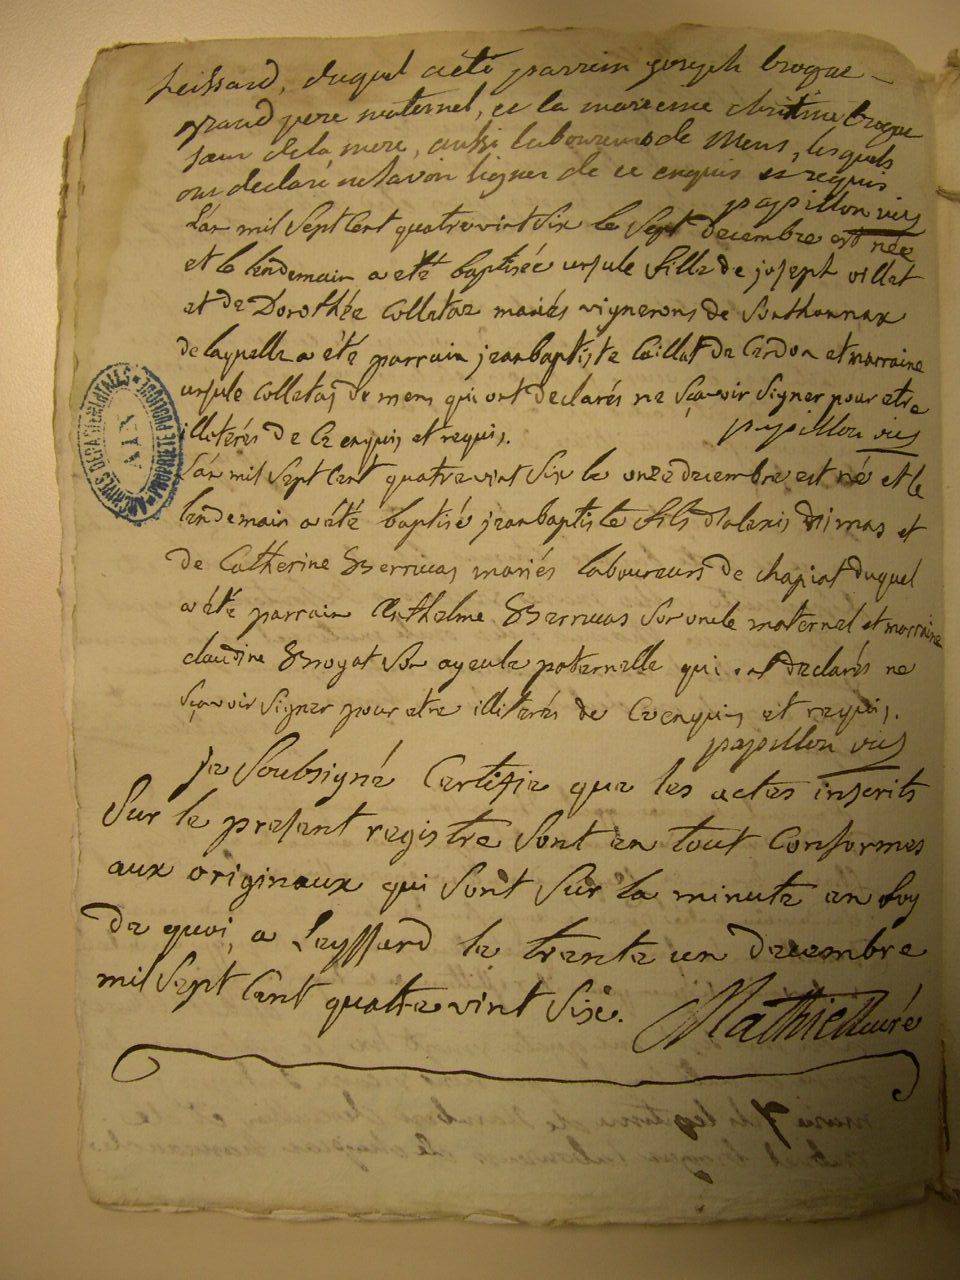 Leissard, duquel a été parrain joseph brogue
grand pere maternel, et la marreine christine brogue
sœur de la mere, aussi laboureurs de Mens, lesquels
ont declaré ne savoir signer de ce enquis et requis
papillon vic
L'an mil Sept Cent quatrevint Six le Sept decembre est née
et le lendemain a eté baptisée ursule fille de joseph villet
et de Dorothée Colletaz mariés vignerons de Sonthonnax
de laquelle a été parrain jean baptiste Caillat de Cerdon et marraine
ursule Colletaz de mens qui ont declarés ne Sçavoir Signer pour etre
illiterés de Ce enquis et requis.
papillon vic
L'an mil Sept Cent quatrevint Six le onze decembre est né et le
lendemain a été baptisé jean baptiste fils d'alexis dimas et
de Catherine mariés laboureurs de chapiat duquel
a été parrain Anthelme Son oncle maternel et marraine
claudine Son ayeule paternelle qui ont declarés ne
Sçavoir Signer pour etre illiterés de Ce enquis et requis.
papillon vic
je Soubsigné Certifie que les actes inscrits
Sur le present registre Sont en tout Conformes
aux originaux qui Sont Sur la minute en foy
de quoi, a Leyssard le trente un decembre
mil Sept Cent quatre vint Six.
Mathieu curé
ARCHIVES DEPARTEMENTALES
AIN
PROPRIETE PUBLIQUE